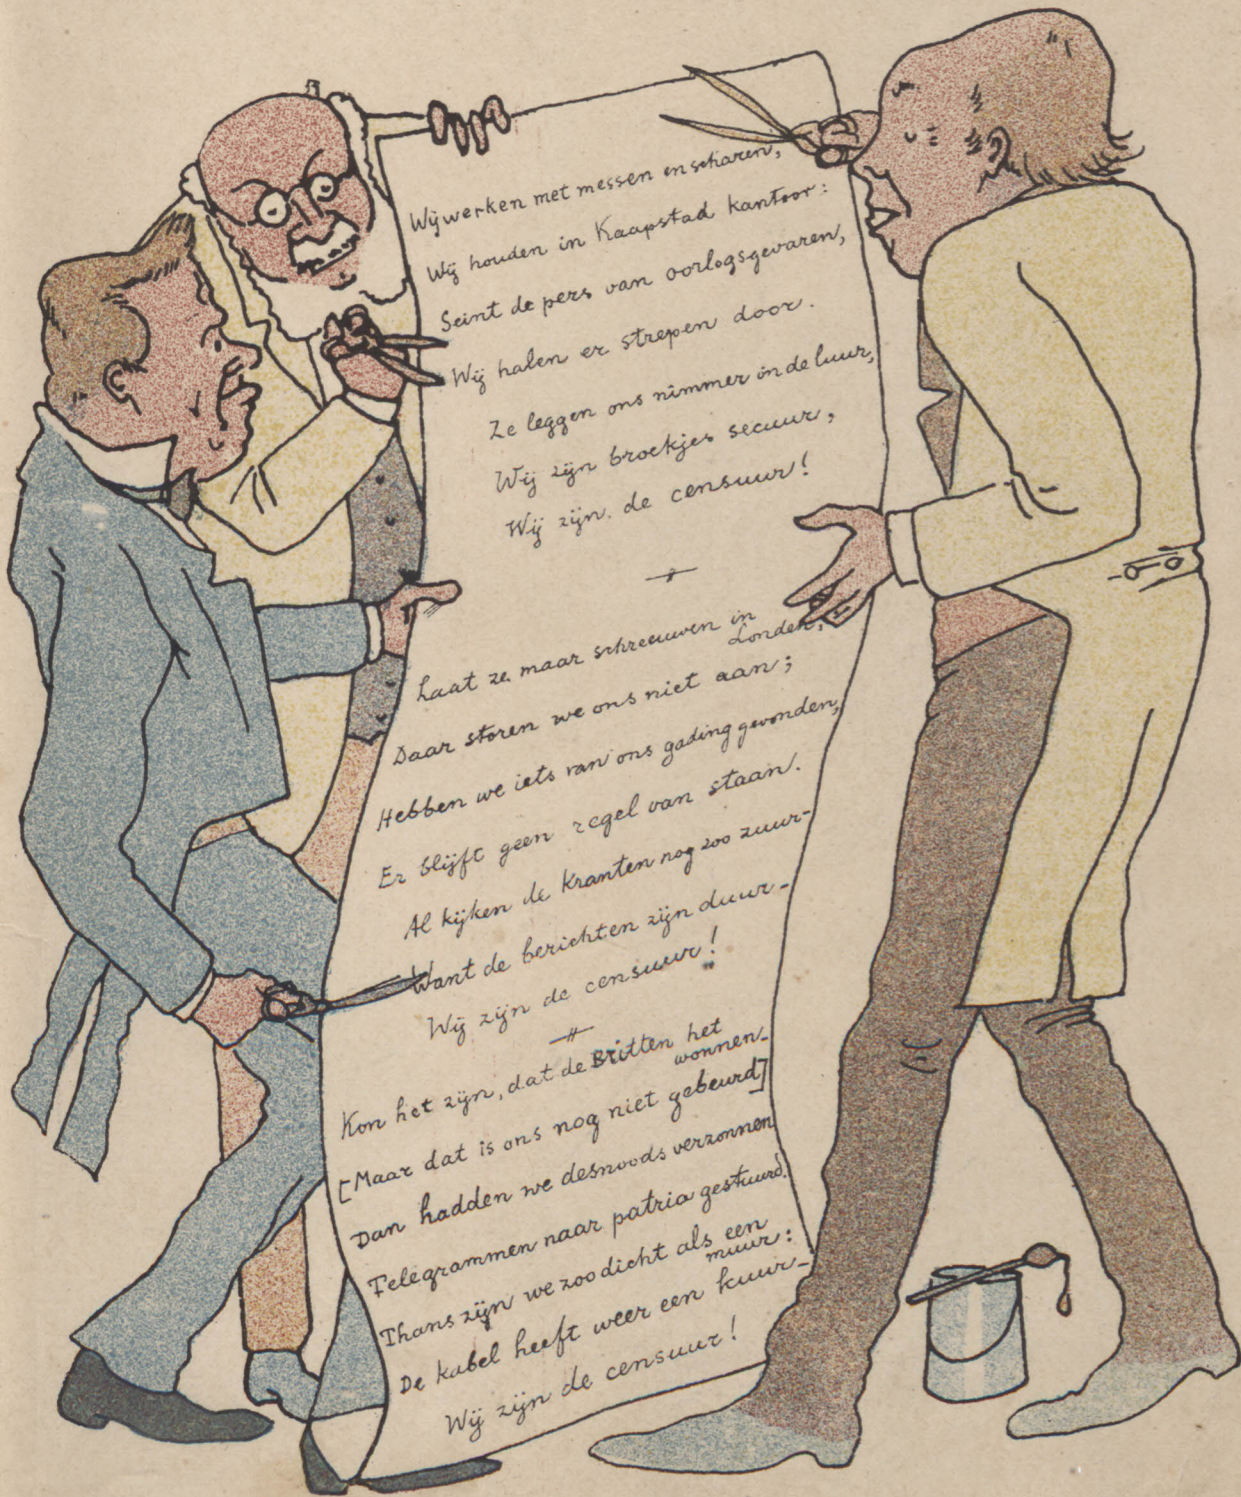 Wij werken met messen en scharen,
Wij houden in Kaapstad kantoor:
Seint de pers van oorlogsgevaren,
Wij halen er strepen door.
Ze leggen ons nimmer in de luur,
Wij zijn broekjes secuur,
Wij zijn de censuur!
Laat ze maar schreeuwen in Londen,
Daar storen we ons niet aan;
Hebben we iets van ons gading gevonden,
Er blijft geen regel van staan.
Al kijken de kranten nog zoo zuur-
Want de berichten zijn duur-
Wij zijn de censuur!
Kon het zijn, dat de Britten het wonnen-
[Maar dat is ons nog niet gebeurd]
Dan hadden we desnoods verzonnen
Telegrammen naar patria gestuurd.
Thans zijn we zoo dicht als een muur:
De kabel heeft weer een kuur-
Wij zijn de censuur!